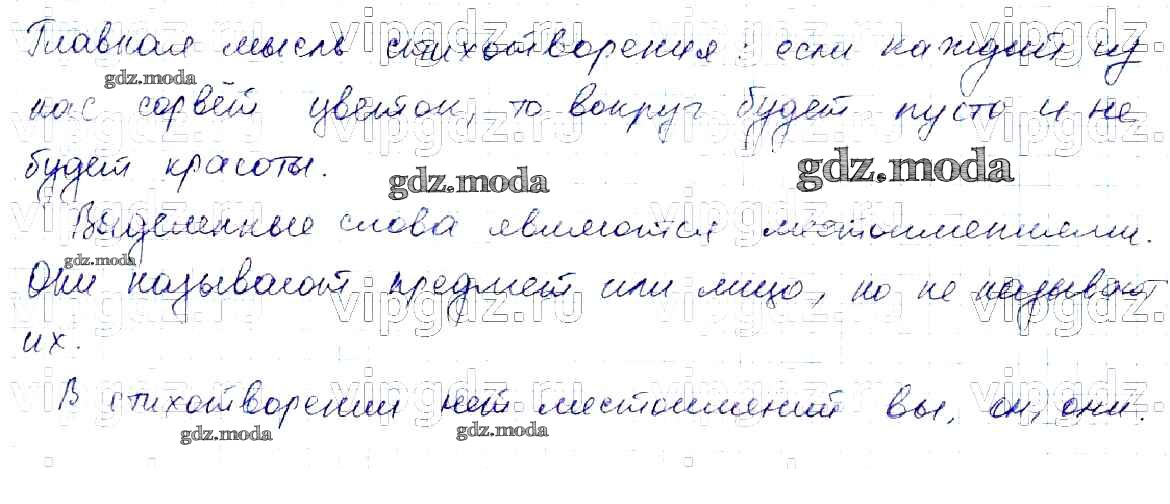 Главная мысль стихотворения: если каждый из
gdz.moda
нас сорвёт цветок, то вокруг будет пусто и не
будет красоты.
gdz.moda
gdz.moda
Выделенные слова являются местоимениями.
gdz.moda
Они называют предмет или лицо, но не называют
их.
В стихотворении нет местоимений вы, он, они.
gdz.moda
gdz.moda